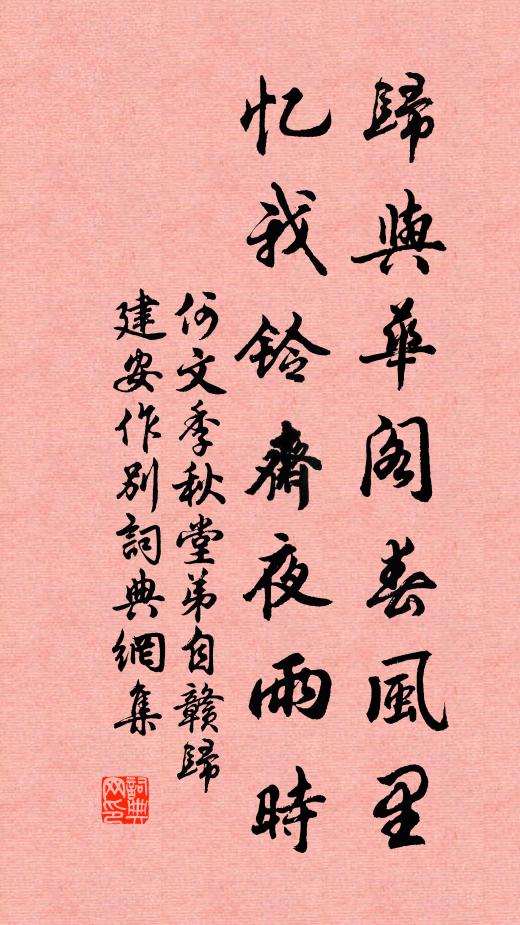 歸與華阁春風里
忆我鈴齋夜雨時
何文季秋堂弟自贛歸
建安作别詞典網集
詞典
网印